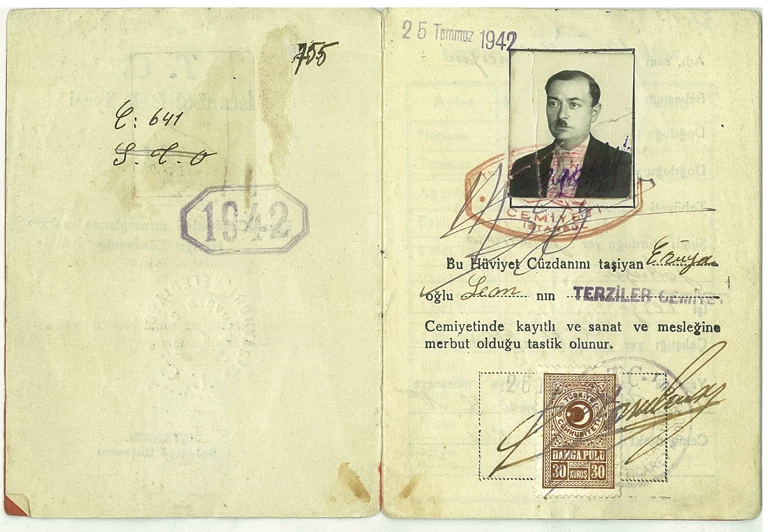 755
C: 641
S. T. O
1942
25 Temmuz 1942
CEMİYETİ
İSTANBUL
Bu Hüviyet Cüzdanını taşiyan
oğlu Leon nın TERZİLER CEMİYETİ
Cemiyetinde kayıtlı ve sanat ve mesleğine
merbut olduğu tastik olunur.
TÜRKİYE
CUMHURİYETİ
DAMGA PULU
30 KURUŞ 30